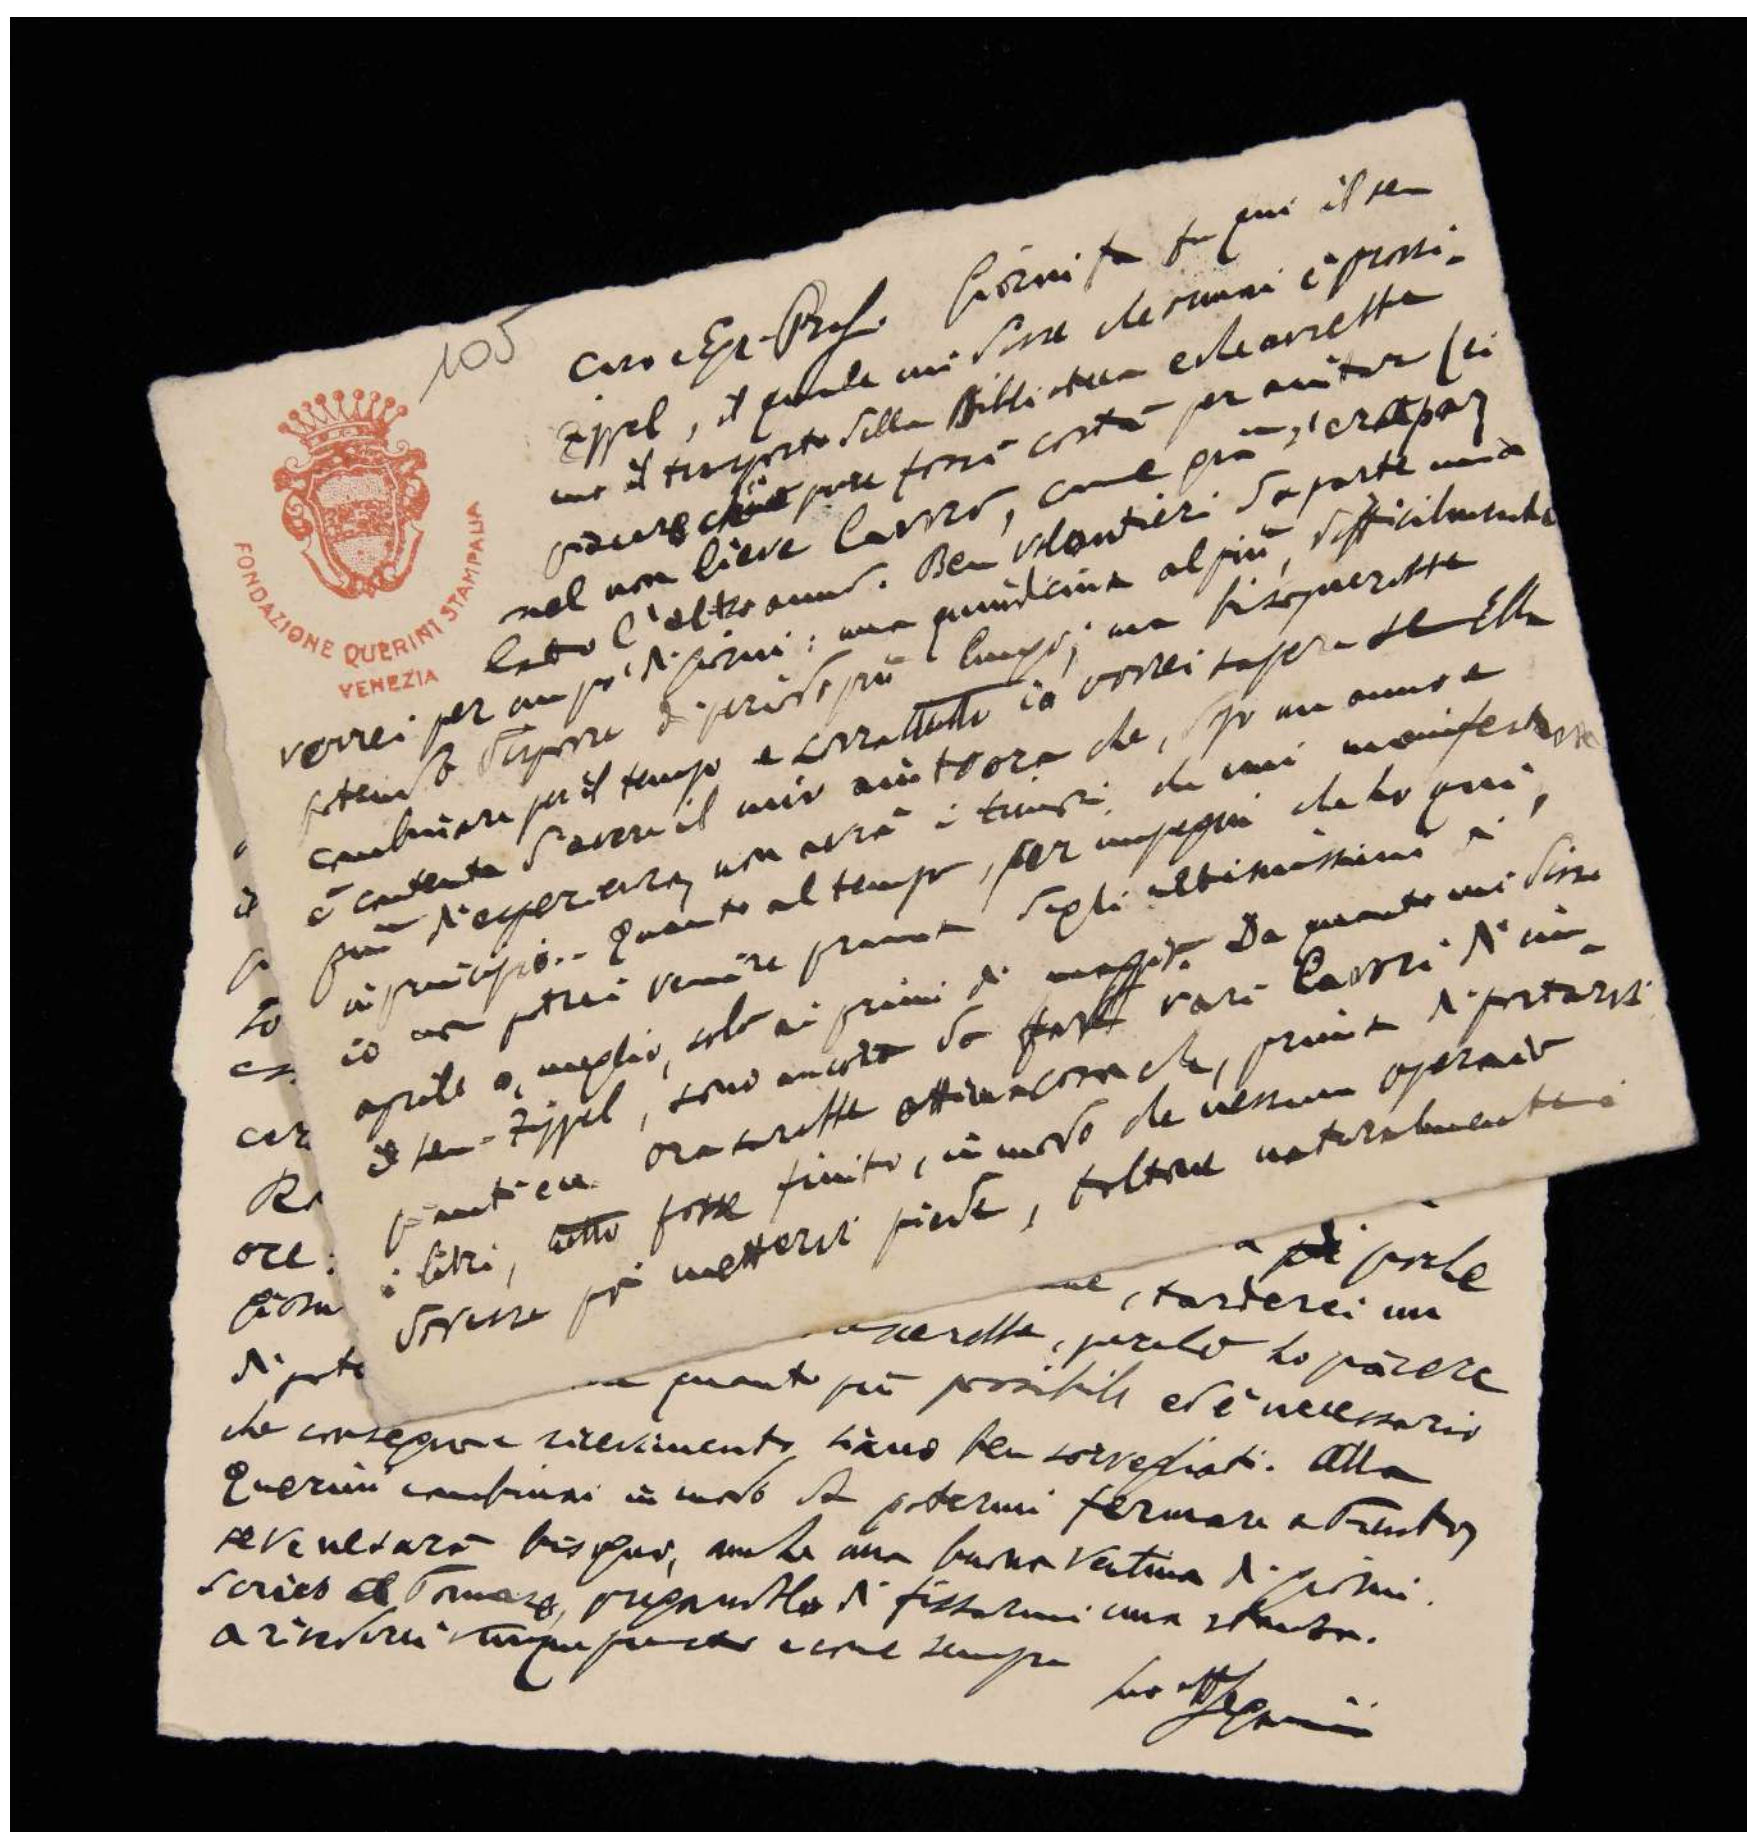 105
FONDAZIONE QUERINI STAMPALIA
VENEZIA
Caro e Egr. Prof. Giorni fa fu qui il sen
Zippel, il quale mi disse che ormai è prossi-
mo il trasporto della Biblioteca e che avrebbe
piacere che pure fossi costà per aiutare
nel non lieve lavoro, come già
l'altro anno. Ben volontieri da parte mia
verrei per un po' di giorni: una quindicina al più, difficilmente
potendo disporre di periodo più lungo; ma bisognerebbe
combinare per il tempo e soprattutto io vorrei sapere se Ella
è contenta d'avere il mio aiuto ora che, dopo un anno e
più di esperienza, non avrà i timori che mi manifestava
in principio.. Quanto al tempo, per impegni che ho qui,
io non potrei venire prima degli ultimissimi di
aprile o, meglio, solo ai primi di maggio. Da quanto mi disse
il sen. Zippel, sono ancora da fare vari lavori di im-
pianti e ora sarebbe ottima cosa che, prima di portarvi
i libri, tutto fosse finito, in modo che nessun operaio
dovesse poi mettervi piede, toltone naturalmente i
cer
Ra
ore:
giorn
poche
, tarderei un
, perché ho piacere
di pote quanto più possibile ed è necessario
che consegna e ricevimento siano ben sorvegliati. Alla
Querini combinai in modo da potermi fermare a Trento,
se ve ne sarà bisogno, anche una buona ventina di giorni.
Scrivo al Tomaso, pregandolo di fissarmi una stanza.
A rivederci e come sempre
Suo